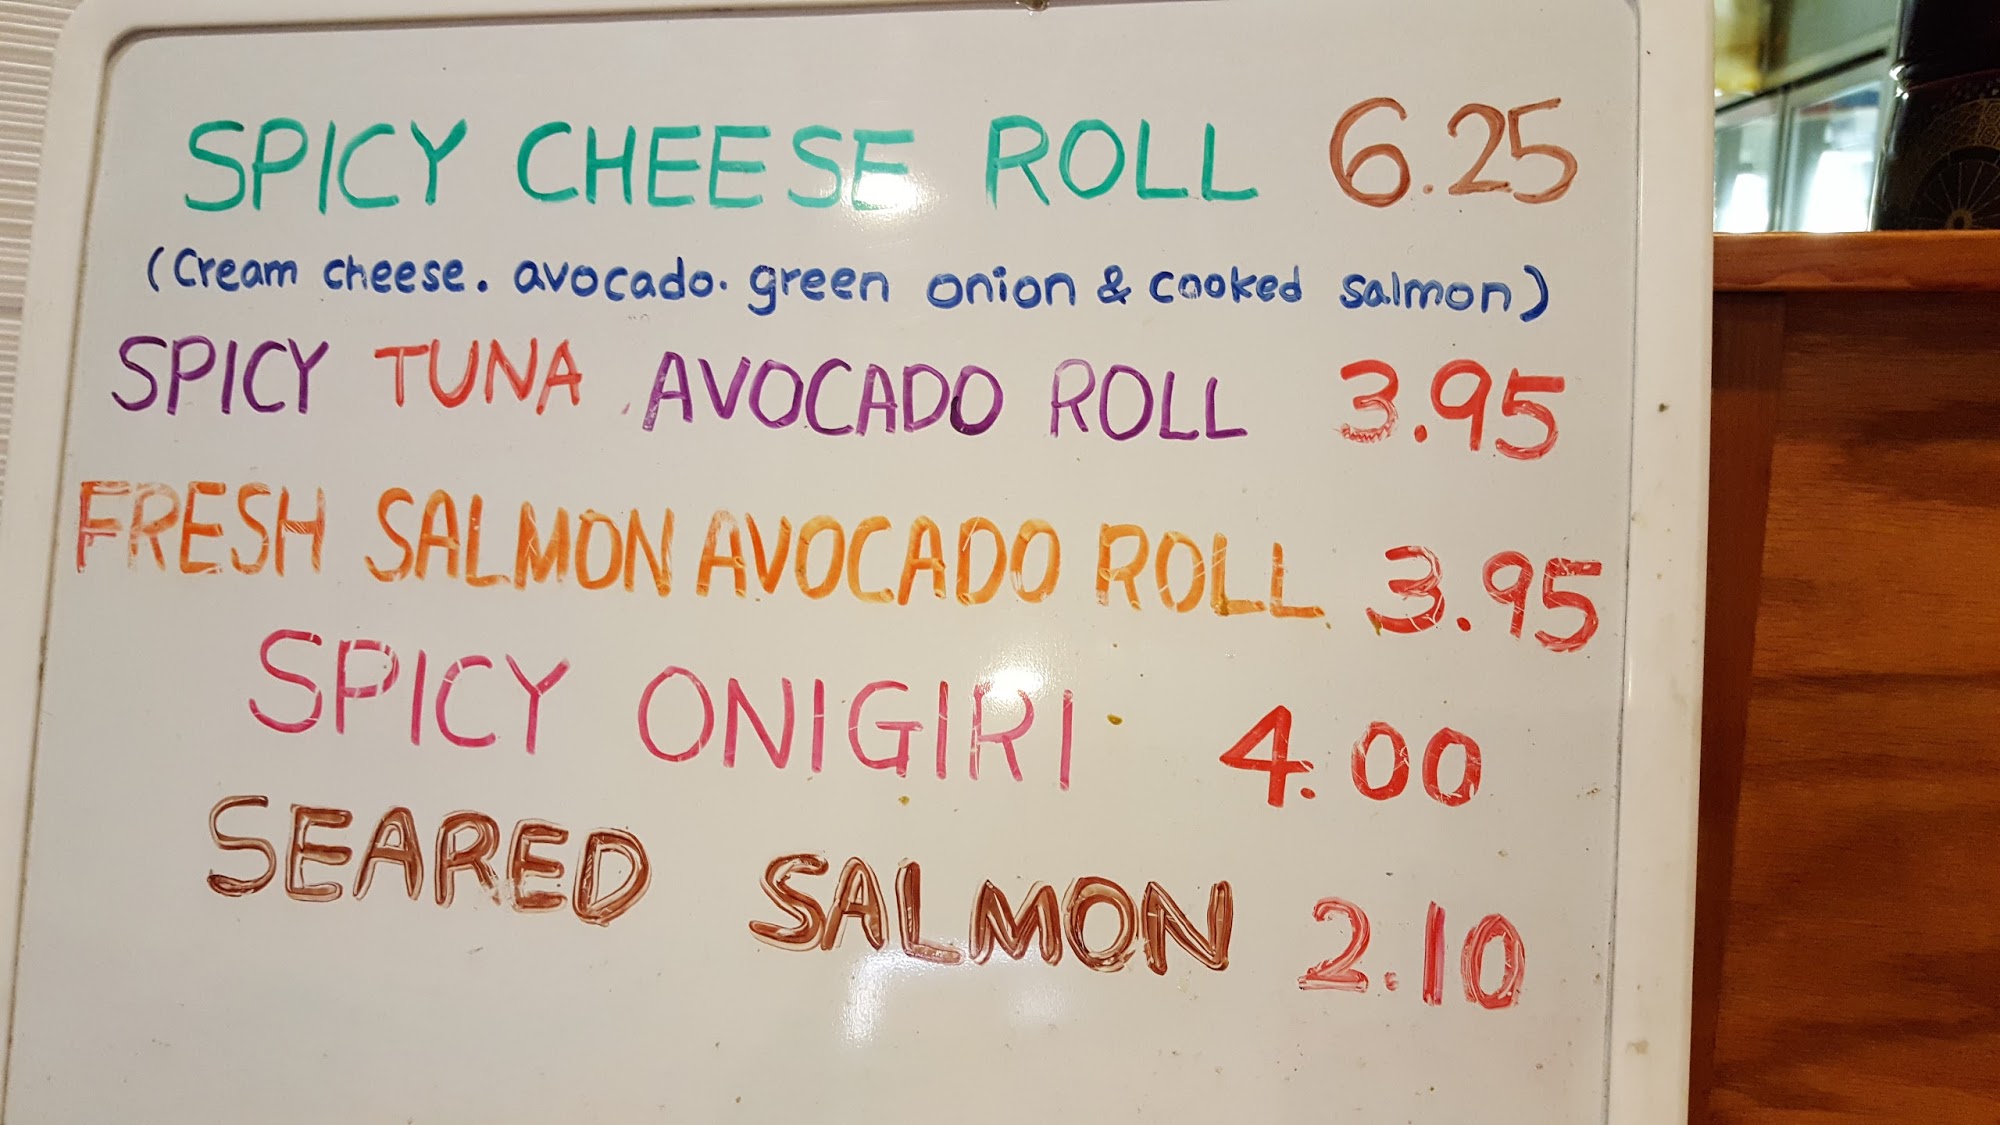 SPICY CHEESE ROLL 6.25
(Cream cheese. avocado. green onion & cooked salmon)
SPICY TUNA AVOCADO ROLL 3.95
FRESH SALMON AVOCADO ROLL 3.95
SPICY ONIGIRI 4.00
SEARED SALMON 2.10